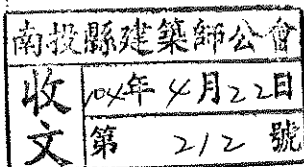 南投縣建築師公會
收文
104年4月22日
第 212 號